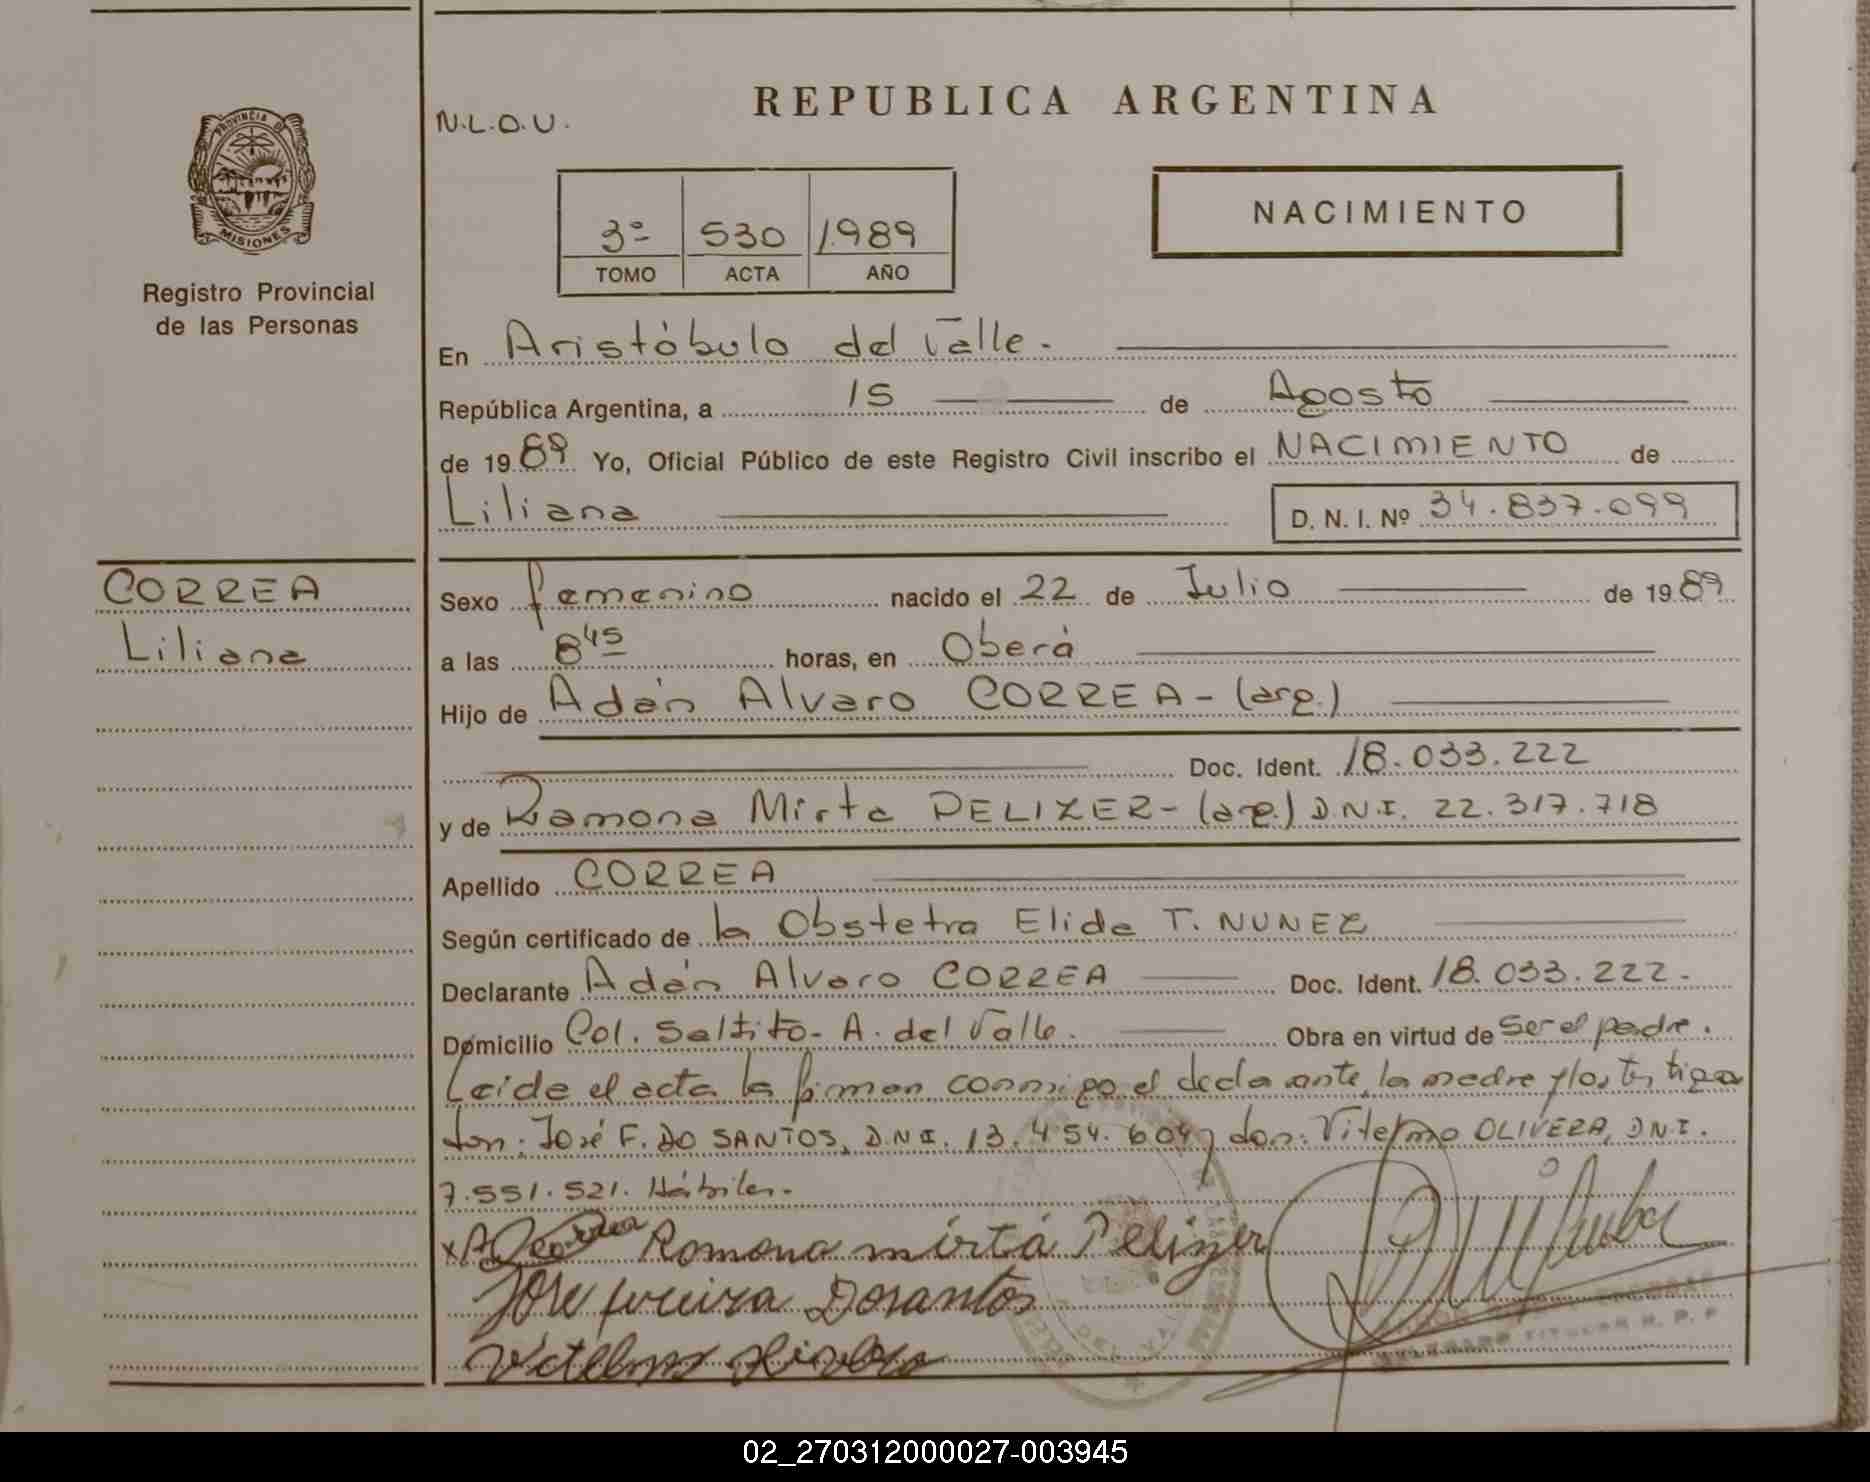 REPUBLICA ARGENTINA
N.L.O.U.
PROVINCIA DE
MISIONES
Registro Provincial
de las Personas
3º 530 1.989
TOMO ACTA AÑO
NACIMIENTO
En Aristóbulo del Valle.
República Argentina, a 15 de Agosto
de 1989 Yo, Oficial Público de este Registro Civil inscribo el NACIMIENTO de
Liliana D. N. I. Nº 34.837.099
CORREA
Liliana
Sexo femenino nacido el 22 de Julio de 1989
a las 8 45 horas, en Oberá
Hijo de Adán Alvaro CORREA - (arg.)
Doc. Ident. 18.033.222
y de Ramona Mirta PELIZER - (arg.) D.N.I. 22.317.718
Apellido CORREA
Según certificado de la Obstetra Elida T. NUNEZ
Declarante Adán Alvaro CORREA Doc. Ident. 18.033.222.
Domicilio Col. Saltito - A. del Valle. Obra en virtud de ser el padre.
Leida el acta la firman conmigo el declarante, la madre y los testigos
don: José F. DO SANTOS, D.N.I. 13.454.604 y don: Vitelmo OLIVERA, D.N.I.
7.551.521. Hábiles.-
x A Correa Ramona mirta Pelizer
Jose fereira Dosantos
Vitelmo
TITULAR R. P. P
02_270312000027-003945